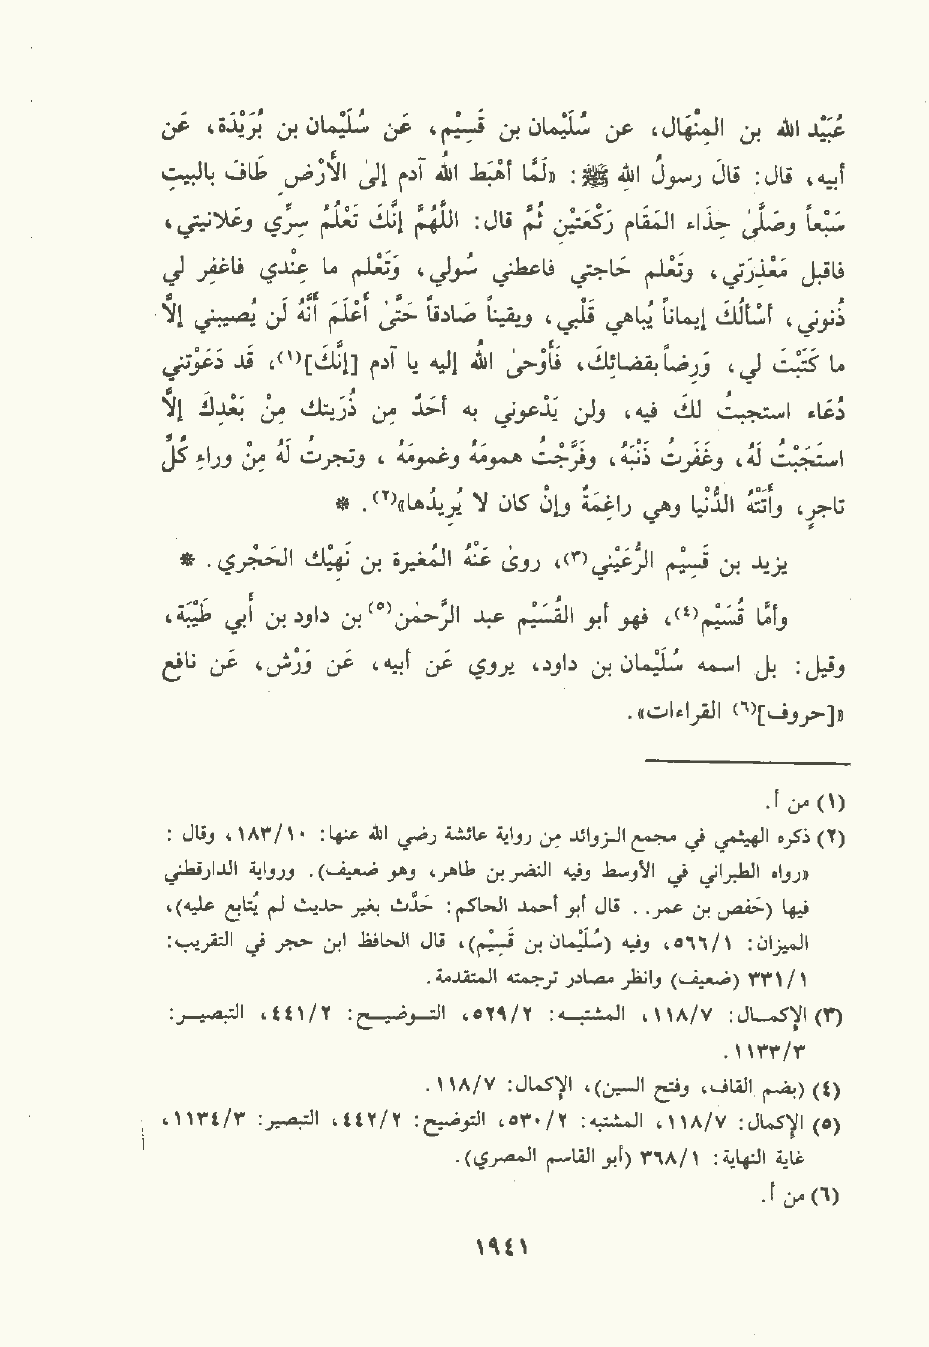 عُبَيْد الله بن المِنْهَال، عن سُلَيْمان بن قَسِيْم، عَن سُلَيْمان بن بُرَيْدَة، عَن
أبيه، قال: قَالَ رسولُ الله ﷺ: «لَمَّا أَهْبَطَ اللهُ آدم إلى الأَرْضِ طَافَ بالبيتِ
سَبْعاً وصَلَّى حِذاء المَقَام رَكْعَتَيْنِ ثُمَّ قال: اللَّهُمَّ إنَّكَ تَعْلَمُ سِرِّي وعَلانيتي،
فاقبل مَعْذِرَتي، وتَعْلَم حَاجتي فاعطني سُولي، وَتَعْلم ما عِنْدي فاغفِر لي
ذُنوني، أسْألُكَ إيماناً يُباهي قَلْبي، ويقيناً صَادقاً حَتَّى أَعْلَمَ أَنَّهُ لَن يُصيبني إلاَّ
ما كَتَبْتَ لي، وَرِضاً بقضائِكَ، فأوْحى اللهُ إليه يا آدم [إنَّكَ](١)، قَد دَعَوْتني
دُعَاء استجبتُ لكَ فيه، ولن يَدْعوني به أحَدٌ مِن ذُرِّيتك مِنْ بَعْدِكَ إلاَّ
استَجَبْتُ لَهُ، وغَفَرتُ ذَنْبَهُ، وفَرَّجْتُ همومَهُ وغمومَهُ ، وتجرتُ لَهُ مِنْ وراءِ كُلِّ
تاجرٍ، وأتَتْهُ الدُّنْيا وهي راغِمَةٌ وإنْ كان لا يُريدُها»(٢). *
يزيد بن قَسِيْم الرُّعَيْني(٣)، روىٰ عَنْهُ المُغيرة بن نَهِيْك الحَجْري. *
وأمَّا قُسَيْم(٤)، فهو أبو القُسَيْم عبد الرَّحمٰن(٥) بن داود بن أبي طَيْبَة،
وقيل: بل اسمه سُلَيْمان بن داود، يروي عَن أبيه، عَن وَرْش، عَن نافع
«[حروف](٦) القراءات».
(١) من أ.
(٢) ذكره الهيثمي في مجمع الزوائد من رواية عائشة رضي الله عنها: ١٨٣/١٠، وقال :
«رواه الطبراني في الأوسط وفيه النضر بن طاهر، وهو ضعيف). ورواية الدارقطني
فيها (حَفص بن عمر.. قال أبو أحمد الحاكم: حَدَّث بغير حديث لم يُتابع عليه)،
الميزان: ٥٦٦/١، وفيه (سُلَيْمان بن قَسِيْم)، قال الحافظ ابن حجر في التقريب:
٣٣١/١ (ضعيف) وانظر مصادر ترجمته المتقدمة.
(٣) الإكمال: ١١٨/٧، المشتبه: ٥٢٩/٢، التوضيح: ٤٤١/٢، التبصير:
١١٣٣/٣.
(٤) (بضم القاف، وفتح السين)، الإكمال: ١١٨/٧.
(٥) الإكمال: ١١٨/٧، المشتبه: ٥٣٠/٢، التوضيح: ٤٤٢/٢، التبصير: ١١٣٤/٣،
غاية النهاية: ٣٦٨/١ (أبو القاسم المصري).
(٦) من أ.
١٩٤١